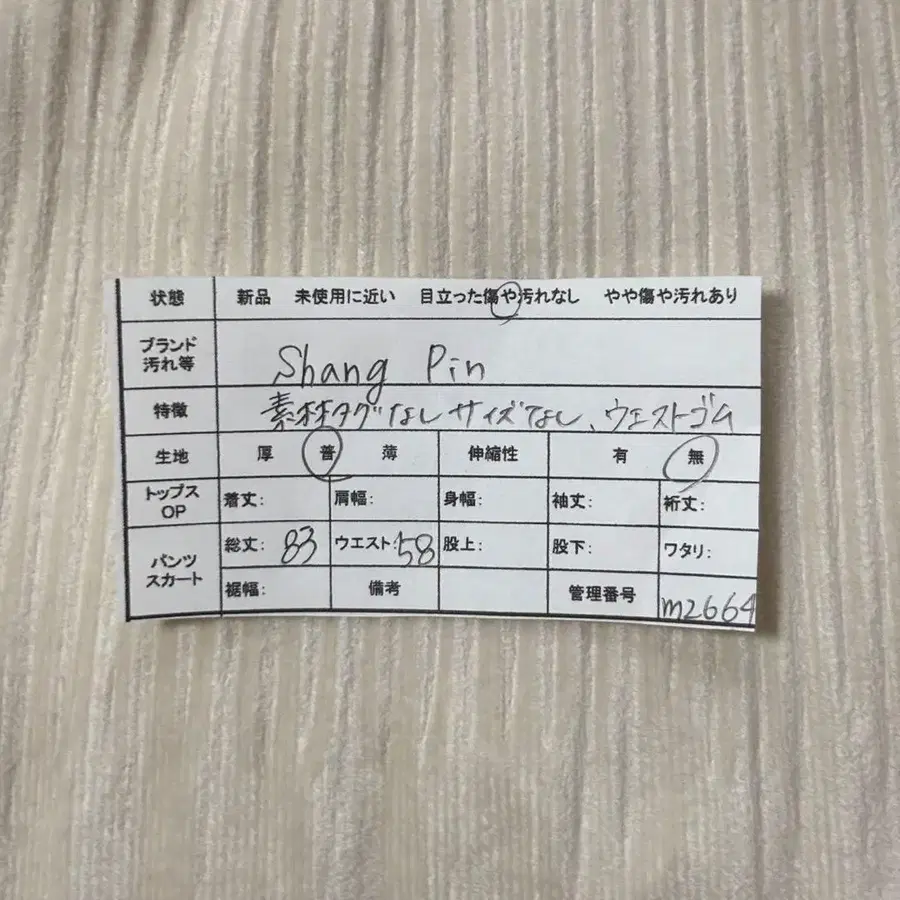 状態 新品 未使用に近い 目立った傷や汚れなし やや傷や汚れあり
ブランド
汚れ等 Shang Pin
特徴 素材タグなしサイズなし、ウエストゴム
生地 厚 普 薄 伸縮性 有 無
トップス
OP 着丈: 肩幅: 身幅: 袖丈: 裄丈:
パンツ
スカート 総丈: 83 ウエスト: 58 股上: 股下: ワタリ:
裾幅: 備考 管理番号 m2664